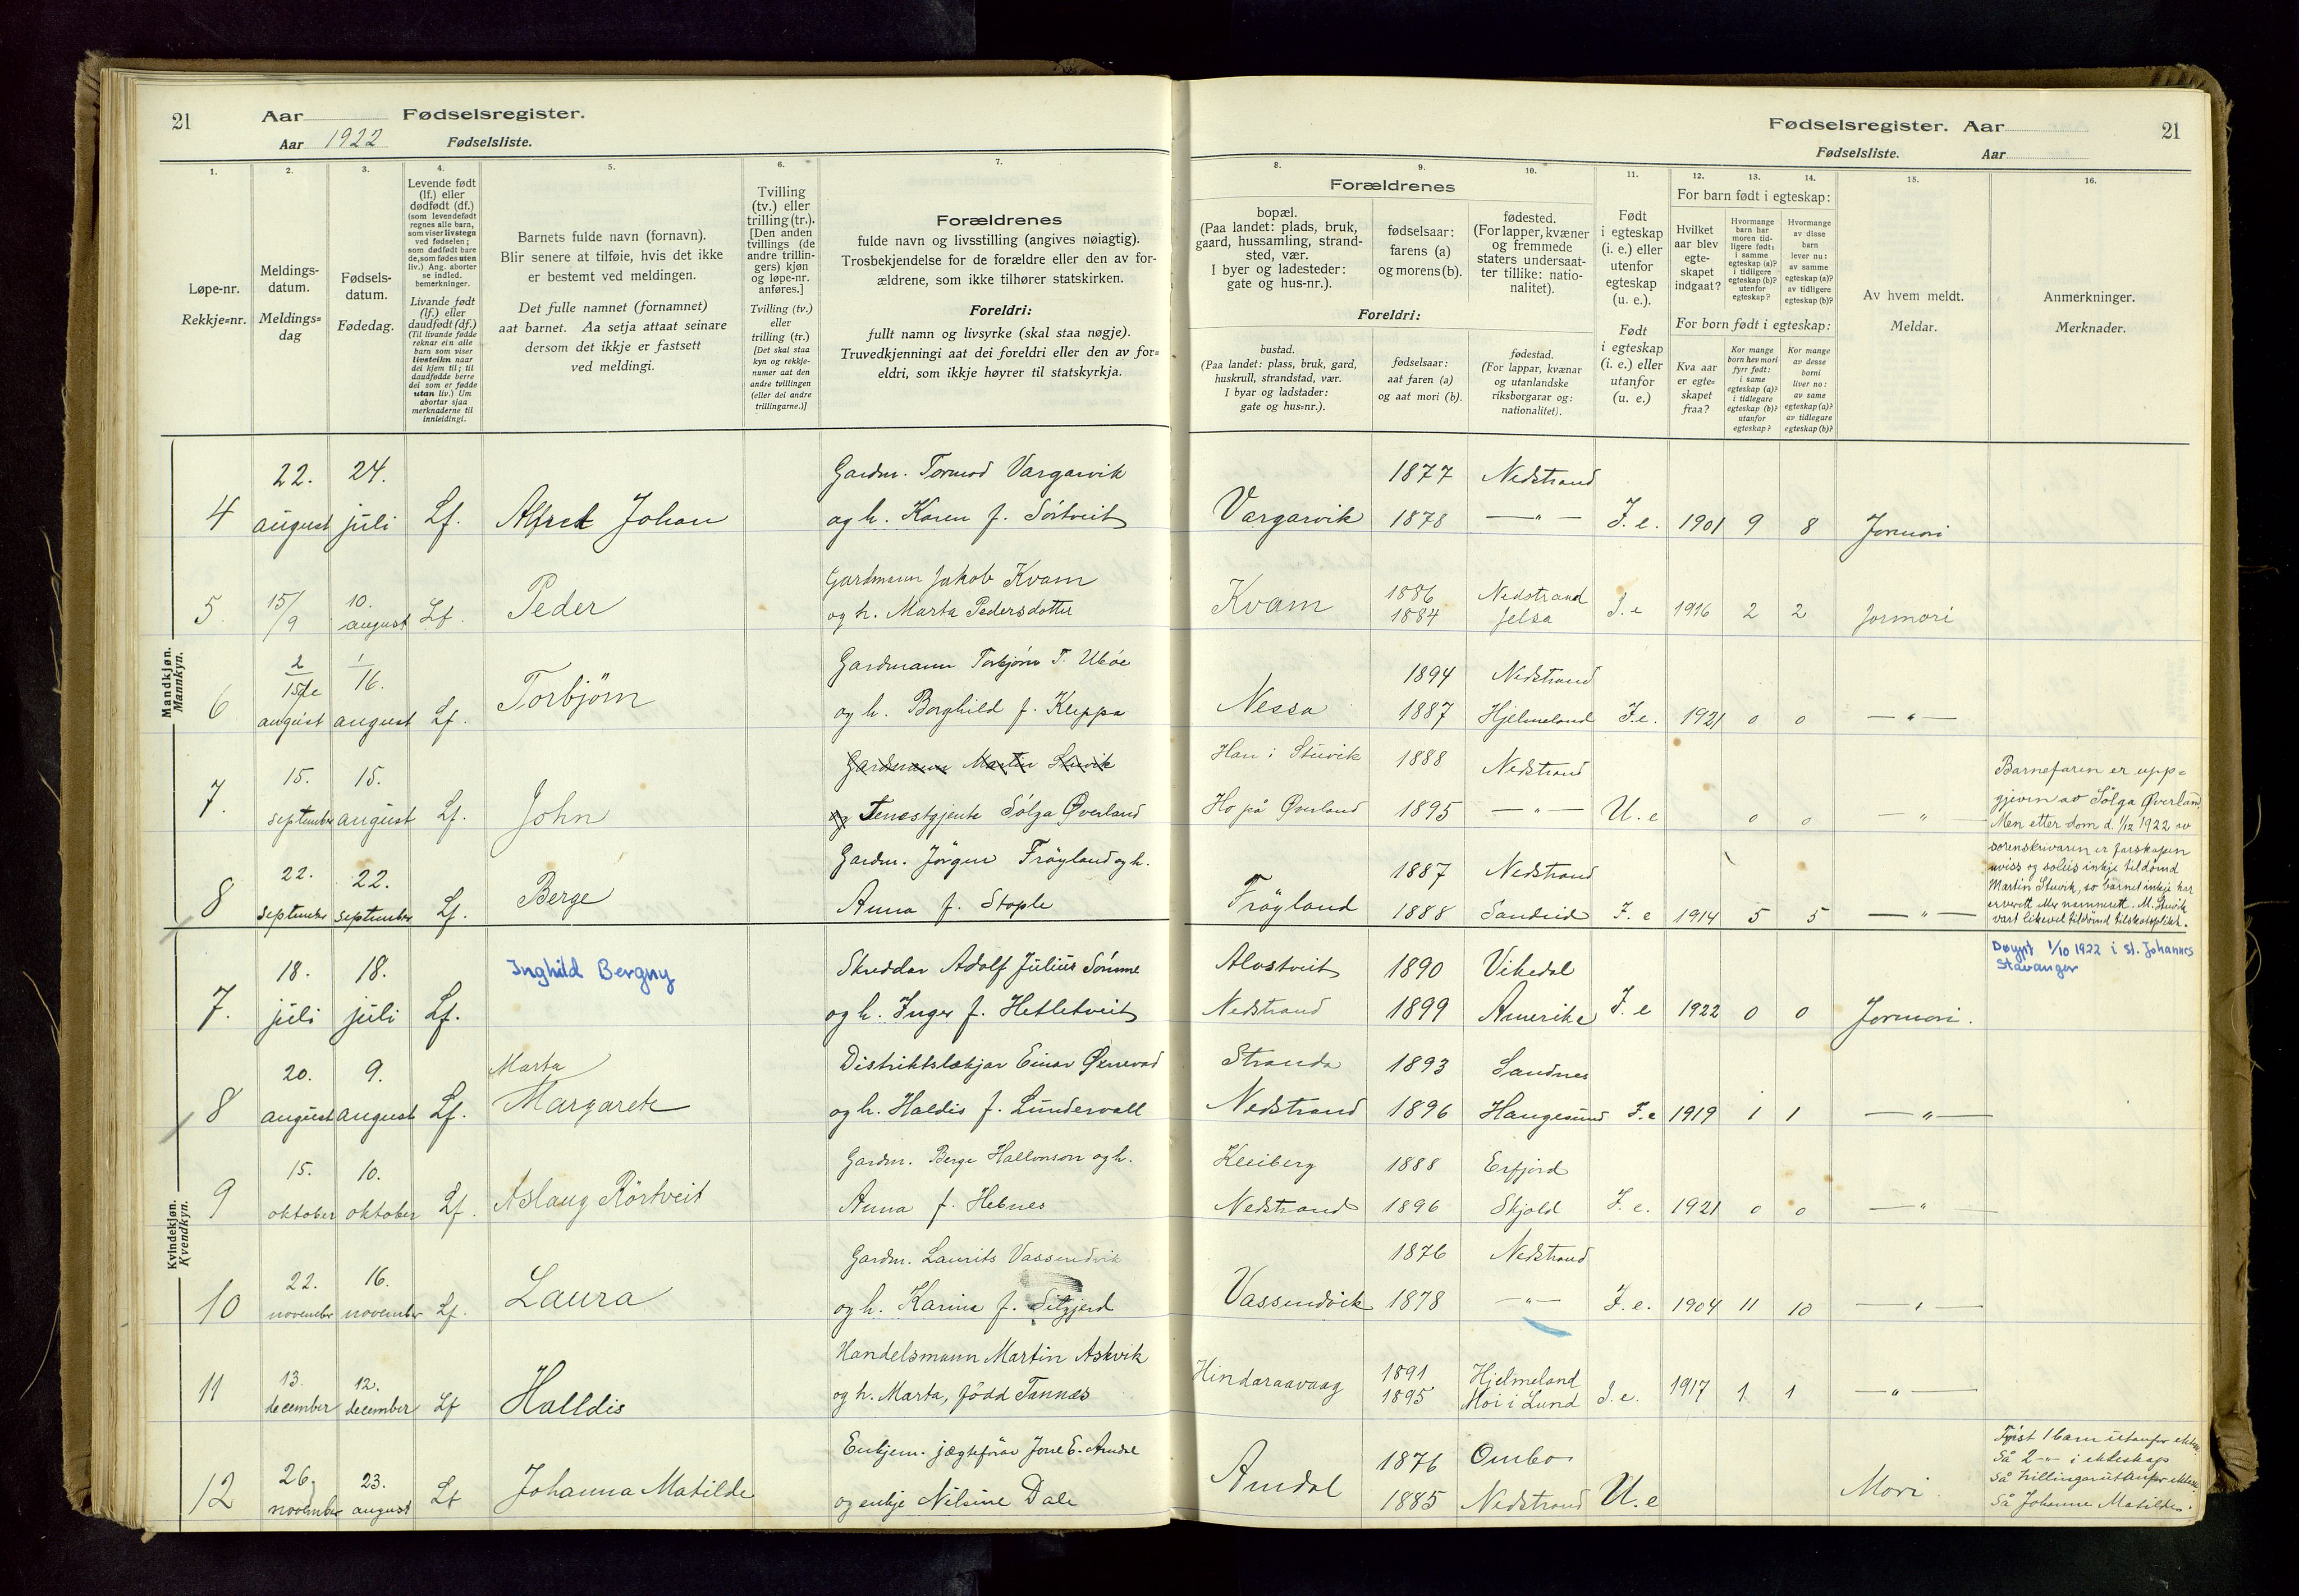 21
Aar Fødselsregister.
Aar 1922 Fødselsliste.
Fødselsregister. Aar
21
Fødselsliste. Aar
1.
Løpe-nr.
Rekkje=nr.
2.
Meldings-
datum.
Meldings=
dag
3.
Fødsels-
datum.
Fødedag.
4.
Levende født
(lf.) eller
dødfødt (df.)
(som levendefødt
regnes alle barn,
som viser livstegn
ved fødselen;
som dødfødt bare
de, som fødes uten
liv.) Ang. aborter
se indled.
bemerkninger.
Livande født
(lf.) eller
daudfødt (df.)
(Til livande fødde
reknar ein alle
barn som viser
livsteikn naar
dei kjem til; til
daudfødde berre
dei som er fødde
utan liv.) Um
abortar sjaa
merknaderne til
innleidingi.
5.
Barnets fulde navn (fornavn).
Blir senere at tilføie, hvis det ikke
er bestemt ved meldingen.
Det fulle namnet (fornamnet)
aat barnet. Aa setja attaat seinare
dersom det ikkje er fastsett
ved meldingi.
6.
Tvilling
(tv.) eller
trilling (tr.).
[Den anden
tvillings (de
andre trillin-
gers) kjøn
og løpe-nr.
anføres.]
Tvilling (tv.)
eller
trilling (tr.)
[Det skal staa
kyn og rekkje-
numer aat den
andre tvillingen
(eller dei andre
trillingarne.)]
7.
Forældrenes
fulde navn og livsstilling (angives nøiagtig).
Trosbekjendelse for de forældre eller den av for-
ældrene, som ikke tilhører statskirken.
Foreldri:
fullt namn og livsyrke (skal staa nøgje).
Truvedkjenningi aat dei foreldri eller den av for=
eldri, som ikkje høyrer til statskyrkja.
Forældrenes
8.
bopæl.
(Paa landet: plads, bruk,
gaard, hussamling, strand-
sted, vær.
I byer og ladesteder:
gate og hus-nr.).
9.
fødselsaar:
farens (a)
og morens (b).
10.
fødested.
(For lapper, kvæner
og fremmede
staters undersaat-
ter tillike: natio-
nalitet).
Foreldri:
bustad.
(Paa landet: plass, bruk, gard,
huskrull, strandstad, vær.
I byar og ladstader:
gate og hus=nr.).
fødselsaar:
aat faren (a)
og aat mori (b).
fødestad.
(For lappar, kvænar
og utanlandske
riksborgarar og:
nationalitet).
11.
Født
i egteskap
(i. e.) eller
utenfor
egteskap
(u. e.).
Født
i egteskap
(i. e.) eller
utanfor
(u. e.)
For barn født i egteskap:
12.
Hvilket
aar blev
egte-
skapet
indgaat?
13.
Hvormange
barn har
moren tid-
ligere født:
i samme
egteskap (a)?
i tidligere
egteskap (b)?
utenfor
egteskap?
14.
Hvormange
av disse
barn
lever nu:
av samme
egteskap (a)?
av tidligere
egteskap (b)?
For born født i egteskap:
Kva aar
er egte=
skapet
fraa?
Kor mange
born hev mori
fyrr født:
i same
egteskap (a)?
i tidlegare
egteskap (b)?
utanfor
egteskap?
Kor mange
av desse
borni
liver no:
av same
egteskap (a)?
av tidlegare
egteskap (b)?
15.
Av hvem meldt.
Meldar.
16.
Anmerkninger.
Merknader.
Mandkjøn.
Mannkyn.
4 22. august 24. juli Lf. Alfred Johan Gardm. Tormod Vargarvik
og h. Karen f. Sørtveit Vargarvik 1877 1878 Nedstrand —"— I. e. 1901 9 8 Jormori
5 15/9 10. august Lf. Peder Gardmann Jakob Kvam
og h. Marta Pedersdotter Kvam 1886 1884 Nedstrand Jelsa I. e 1916 2 2 Jormori
6 august 16. august Lf. Torbjørn Gardmann Torbjørn T. Ubøe
og h. Borghild f. Kleppa Nessa 1894 1887 Nedstrand Hjelmeland I. e. 1921 0 0 —"—
7. 15. september 15. august Lf. John Gardmann Martin Stuvik
og Tenestgjente Sølga Øverland Han i Stuvik 1888 Nedstrand
Ho på Øverland 1895 —"— U. e 0 0 —"—
Barnefaren er upp=
gjeven av Sølga Øverland.
Men etter dom d. 1/12 1922 av
sorenskrivaren er farskapen
uviss og soleis inkje tildømd
Martin Stuvik, so barnet inkje har
M. Stuvik
vart likevel tildømd tilskotsplikt.
8 22. september 22. september Lf. Berge Gardm. Jørgen Frøyland og h.
Anna f. Stople Frøyland 1887 1888 Nedstrand Sandeid I. e 1914 5 5 —"—
Kvindekjøn.
Kvendkyn.
7. 18. juli 18. juli Lf. Inghild Bergny Skreddar Adolf Julius Sømme
og h. Inger f. Hetletveit Alvstveit Nedstrand 1890 1899 Vikedal Amerika I. e 1922 0 0 Jormori.
Døypt 1/10 1922 i St. Johannes
Stavanger
8 20. august 9. august Lf. Marta
Margarete Distriktslækjar Einar Øknevad
og h. Haldis f. Lundervall Stranda Nedstrand 1893 1896 Sandnes Haugesund I. e 1919 1 1 —"—
9 15. oktober 10. oktober Lf. Aslaug Rörtveit Gardm. Berge Hallvorson og h.
Anna f. Hebnes Kleiberg Nedstrand 1888 1896 Erfjord Skjold I. e. 1921 0 0 —"—
10 22. november 16. november Lf. Laura Gardm. Laurits Vassendvik
og h. Karine f. Vassendvik 1876 1878 Nedstrand —"— I. e. 1904 11 10 —"—
11 13. december 12. december Lf Halldis Handelsmann Martin Askvik
og h. Marta, född Tannæs Hindaraavaag 1891 1895 Hjelmeland Moi i Lund I. e. 1917 1 1 —"—
12 26. november 23. august Lf Johanna Matilde Enkjem. jægteförar Jone E. Amdal
og enkje Nilsine Dale Amdal 1876 1885 Ombo Nedstrand U. e Mori.
Fyrst 1 barn utanfor
Så 2 -"- i ekteskap
Så tvillingar utanfor
Så Johanne Matilde.